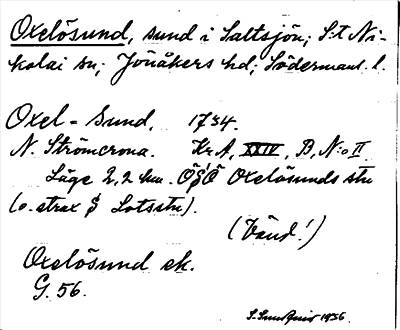 Oxelösund, sund i Saltsjön; S:t Ni-
kolai sn; Jönåkers hd; Södermanl. l.
Oxel-Sund, 1734.
N. Strömcrona. Kr. A, XXIV, B, N:o II
Läge 2,2 km. ÖSÖ Oxelösunds stn
(o. strax S Lotsstn).
(Vänd!)
Oxelösund ek.
G. 56.
1936